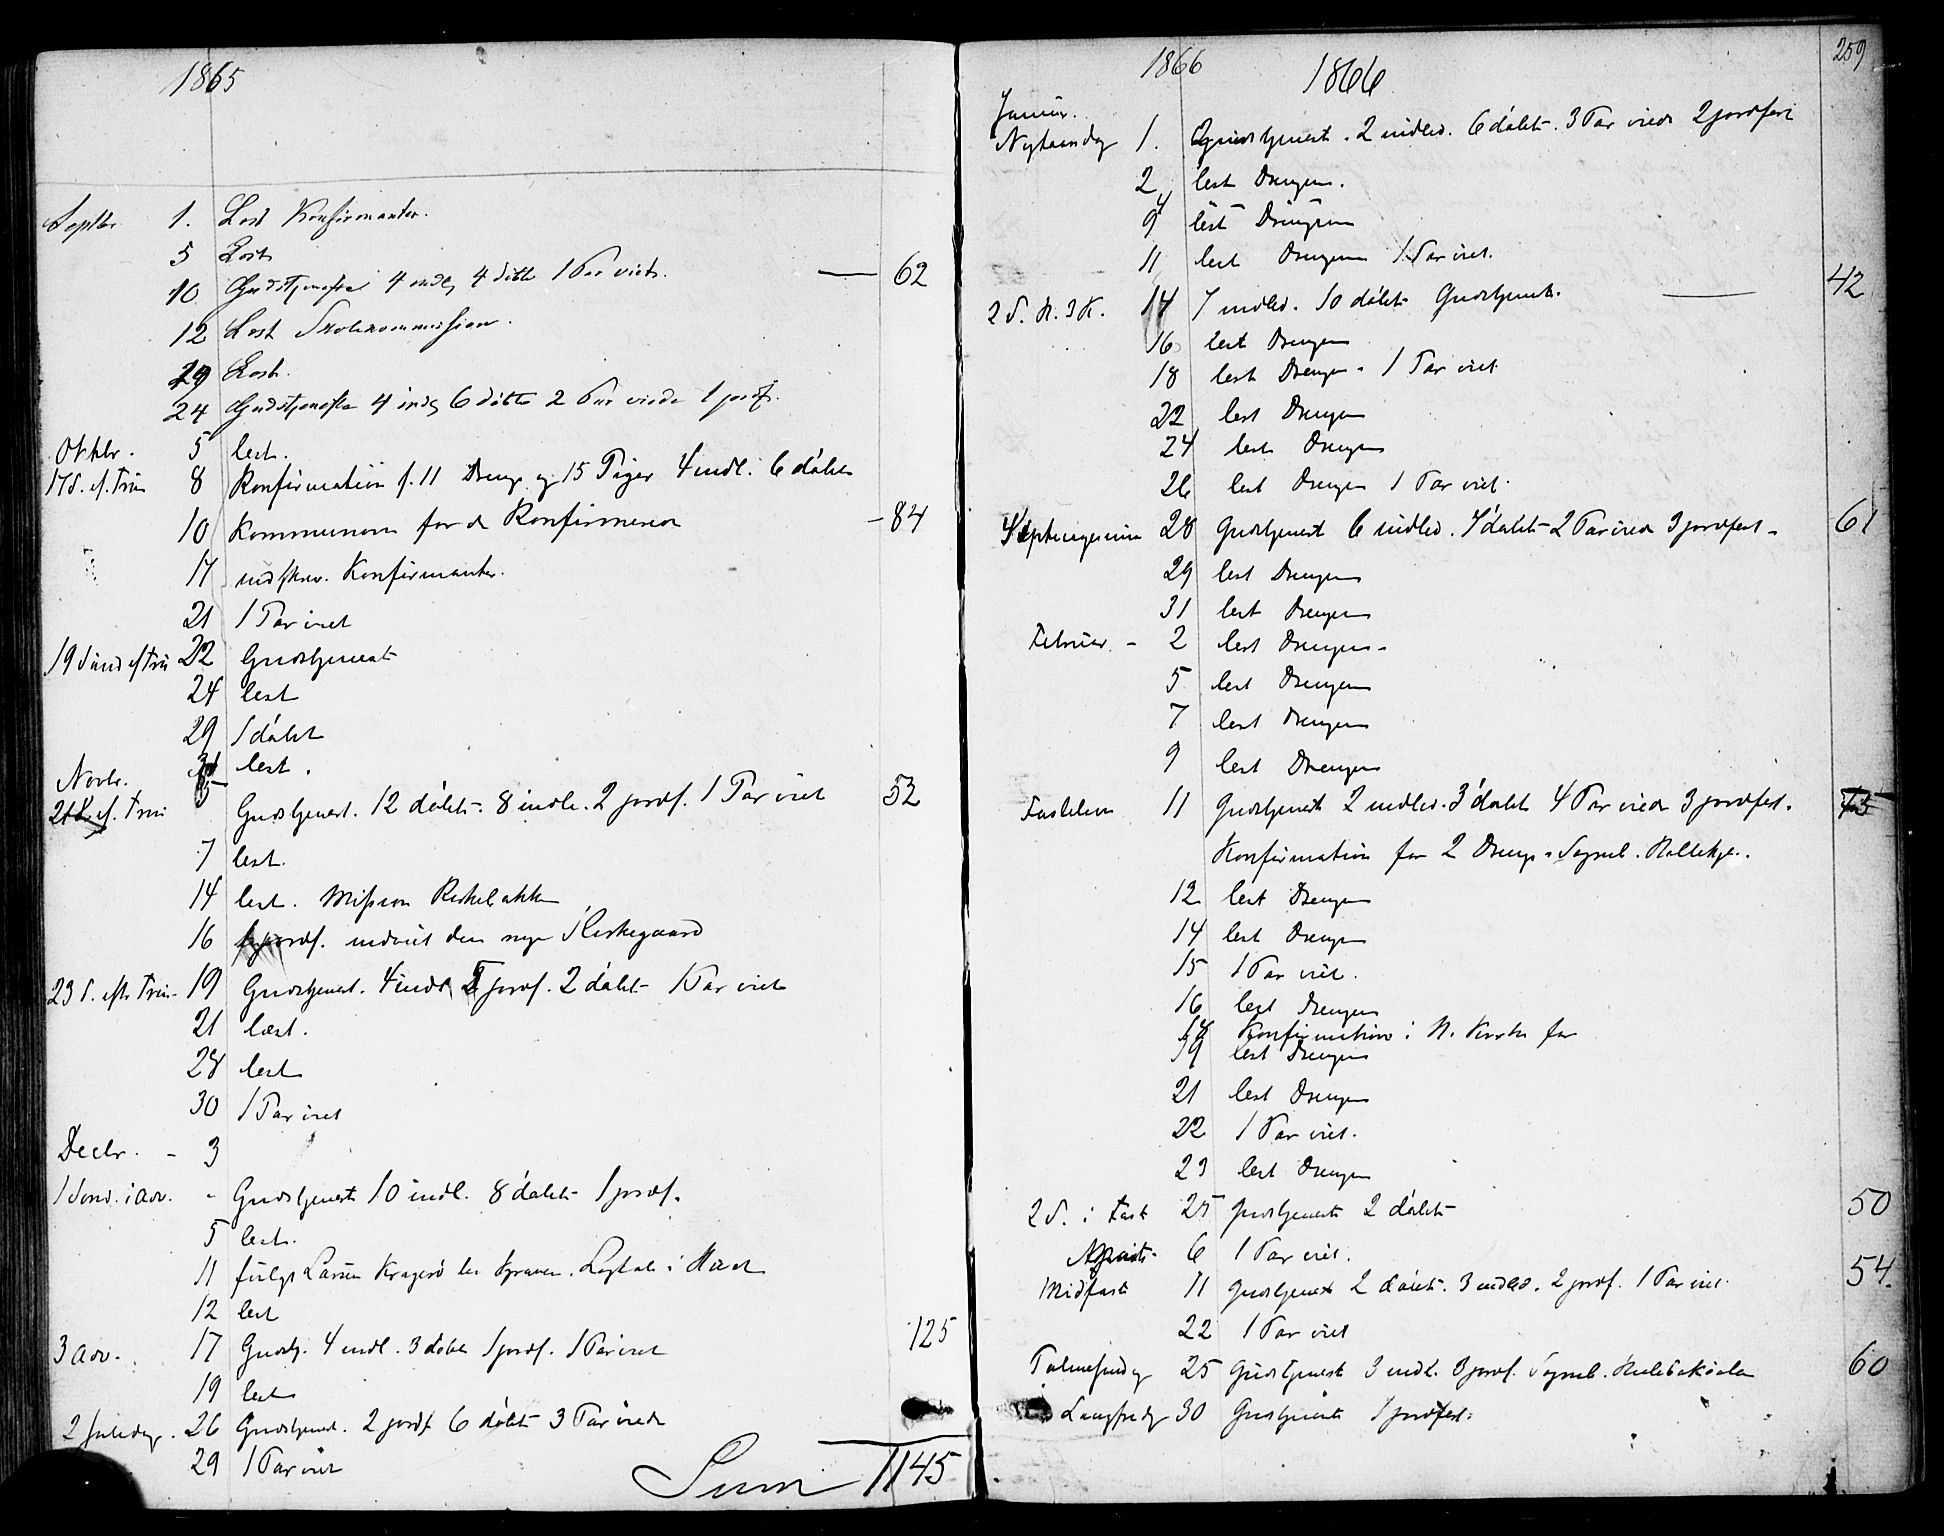 1865
Septbr. 1. Læst Konfirmanter.
5 Læst
10 Gudstjeneste 4 indl. 4 döbte 1 Par viet. — 62
12 Læst Skolekommission.
19 Læst.
24 Gudstjeneste 4 indl. 6 döbte 2 Par viede 1 jordf.
Oktbr. 5 læst.
17 S. ef. Trin 8 Konfirmation f. 11 Dreng. og 15 Piger 4 indl. 6 döbte
10 Kommunion for de Konfirmerede – 84
17 indskrev. Konfirmanter.
21 1 Par viet
19 Sönd ef Trin 22 Gudstjeneste
24 læst
29 1 döbt
31 læst.
Novbr. 21 S. ef. Trin 5 Gudstjenest. 12 döbt. 8 indl. 2 jordf. 1 Par viet 52
7 læst.
14 læst. Mission
16 jordf. indviet den nye Kirkegaard
23 S. eft. Trin. 19 Gudstjenest. 4 indl. jordf. 2 döbt 1 Par viet
21 læst.
28 læst
30 1 Par viet
Decbr. – 3
1 Sönd. i Adv. - Gudstjenest 10 indl. 8 döbt 1 jordf.
5 læst.
11 fulgt Larsen Kragerö
12 læst
3 Adv. 17 Gudstj. 4 indl. 3 döbt 1 jordf. 1 Par viet 125
19 læst
2 Juledag. 26 Gudstjenest. 2 jordf. 6 döbt 3 Par viede
29 1 Par viet
Sum 1145
259
1866 1866
Januar.
Nytaarsdag 1. Gudstjenest. 2 indled. 6 döbt. 3 Par viede 2 jordfest
2 læst Drengene.
9 læst Drengene
11 læst Drengene 1 Par viet.
2 S. H. 3 K. 14 7 indled. 10 döbt Gudstjenest. — 42
16 læst Drengene
18 læst Drengene. 1 Par viet
22 læst Drengene
24 læst Drengene
26 læst Drengene 1 Par viet.
Septuagesima 28 Gudstjenest 6 indled. 7 döbt 2 Par viede 3 jordfest. 61
29 læst Drengene
31 læst Drengene
Februar – 2 læst Drengene
5 læst Drengene
7 læst Drengene
9 læst Drengene
Fastelavn 11 Gudstjenest 2 indled. 3 döbt 4 Par viede 3 jordfest.
Konfirmation for 2 Drenge
12 læst Drengene
14 læst Drengene
15 1 Par viet.
16 læst Drengene
18 Konfirmation i N. Kirke for
19 læst Drengene
21 læst Drengene
22 1 Par viet.
23 læst Drengene
2 S. i Fast 25 Gudstjenest 2 döbt 50
6 1 Par viet.
Midfaste 11 Gudstjenest 2 döbt. 3 indled. 2 jordf. 1 Par viet. 54.
22 1 Par viet
Palmesöndag 25 Gudstjenest 3 indl. 3 jordf. 60
Langfredag 30 Gudstjenest 1 jordfest.